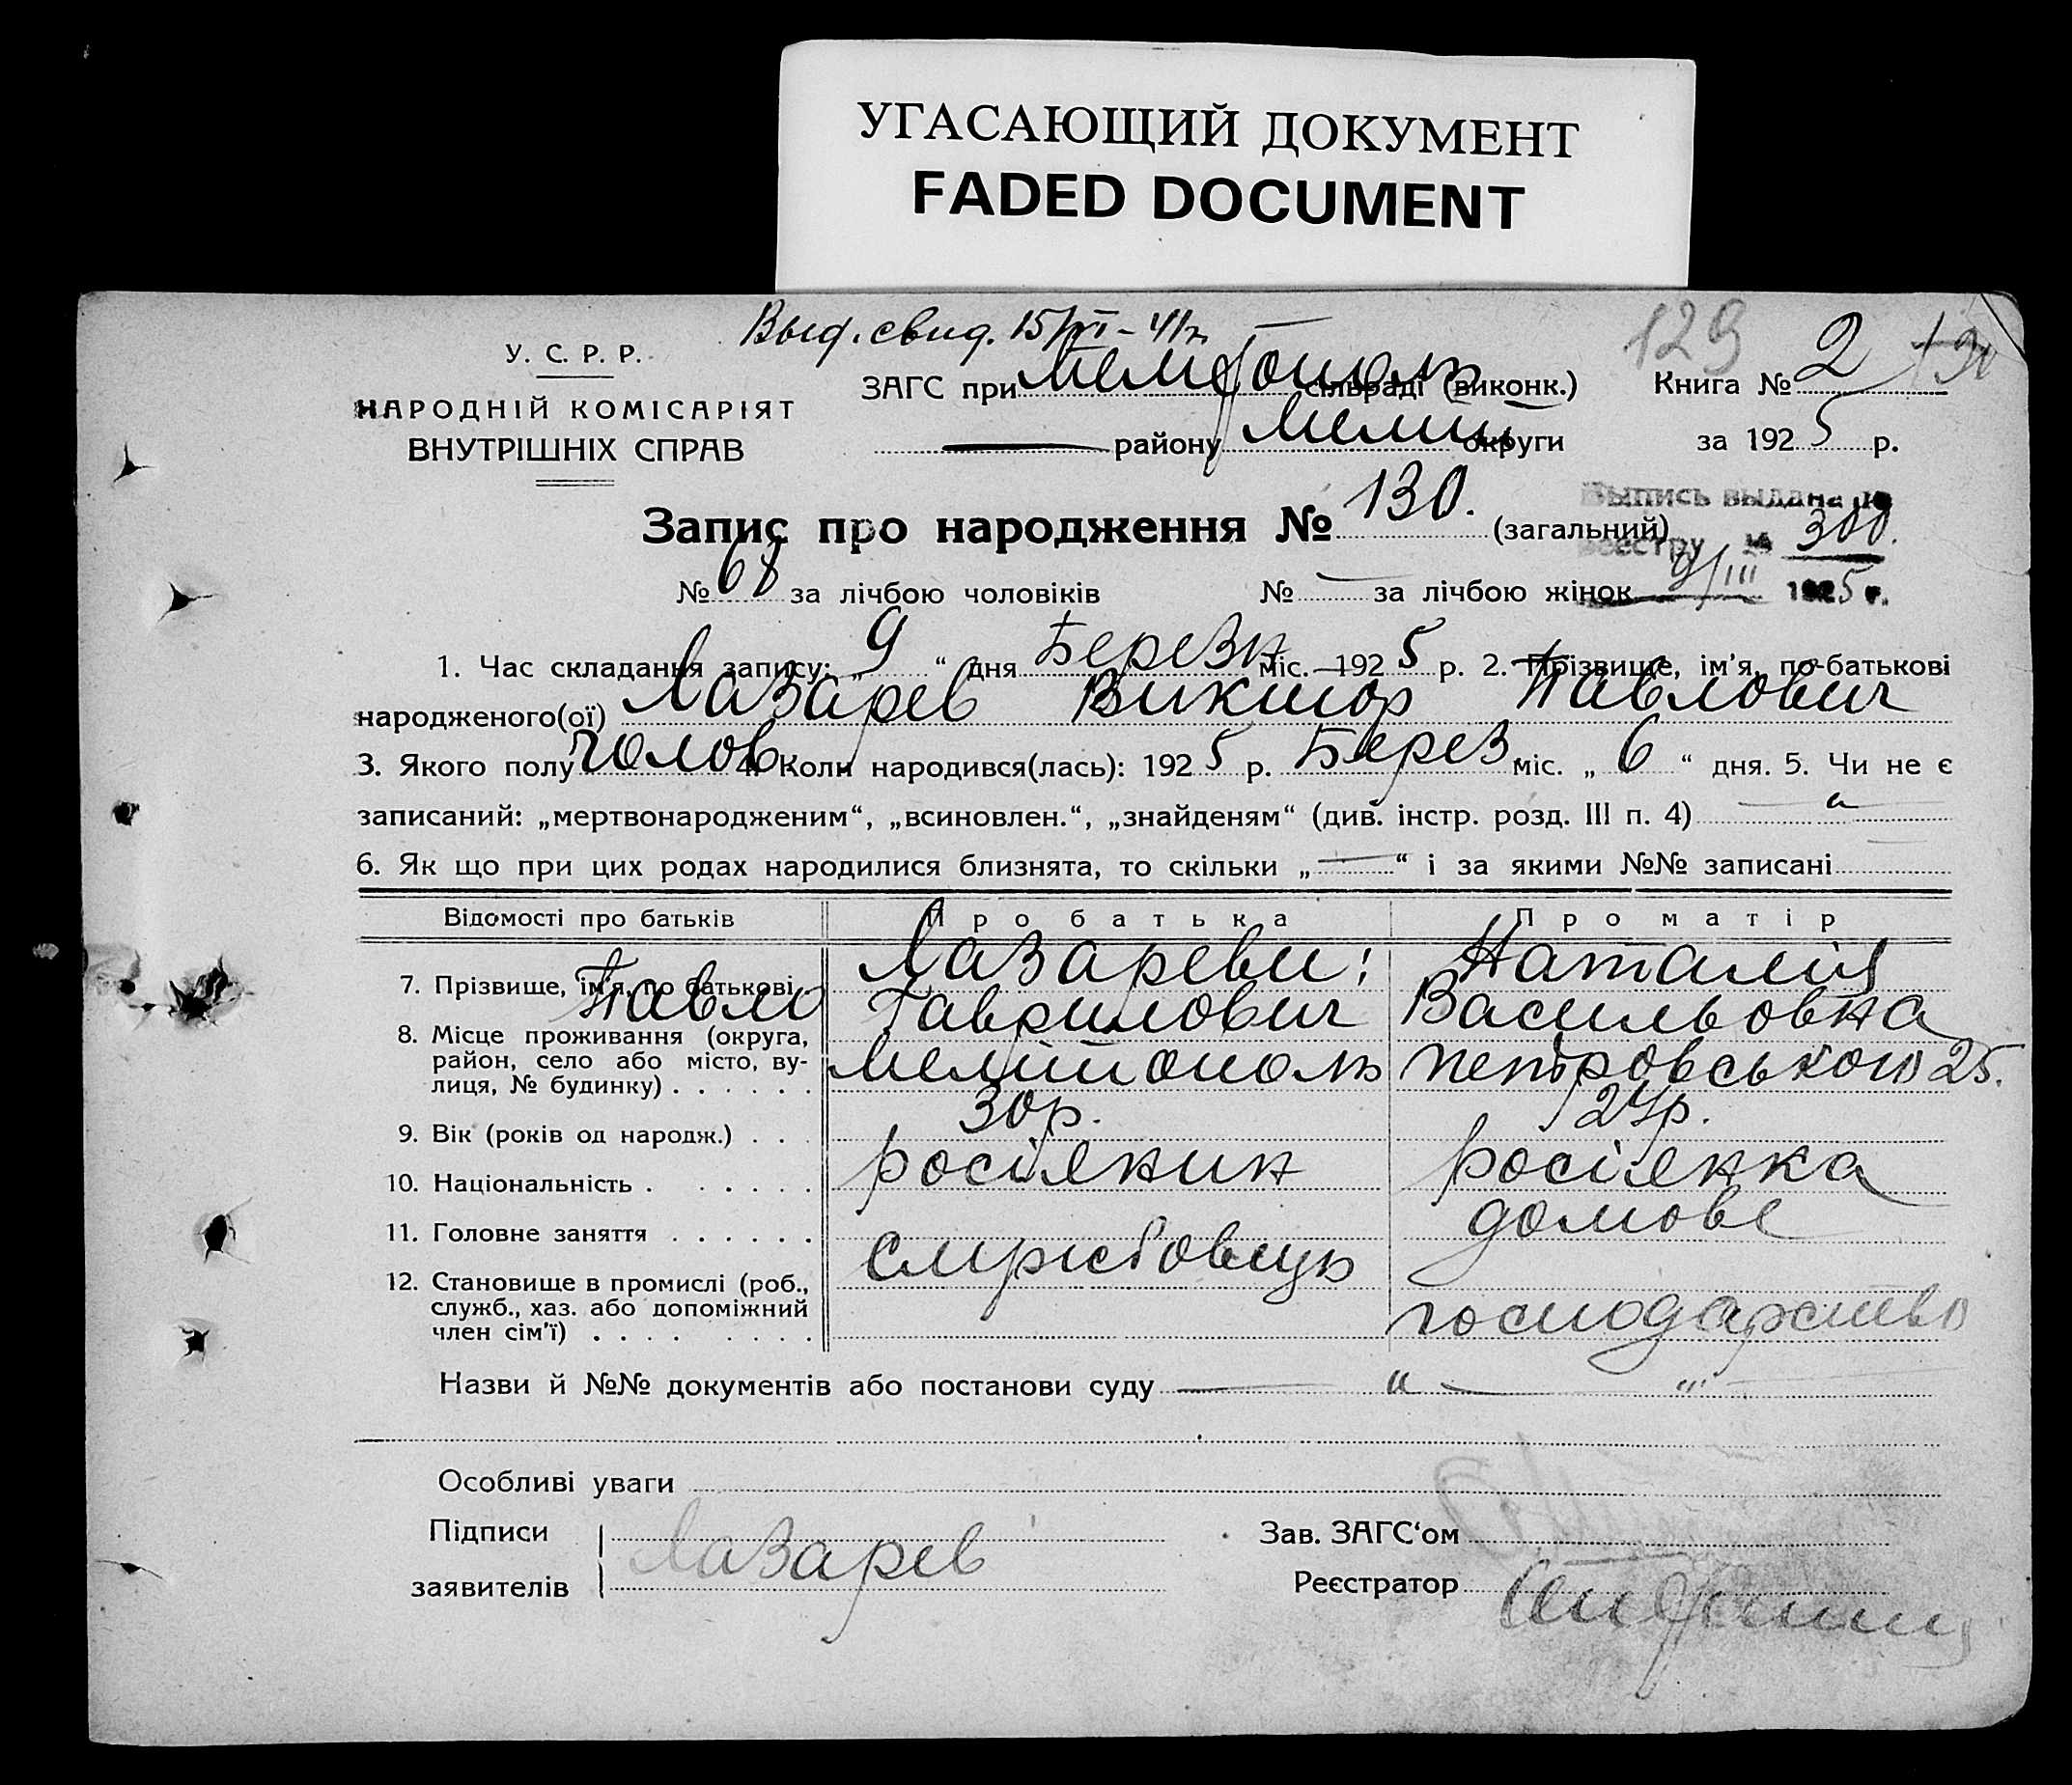 УГАСАЮЩИЙ ДОКУМЕНТ
FADED DOCUMENT
Выд. свид. 15/VI - 41 г.
129
У. С. Р. Р.
НАРОДНІЙ КОМІСАРІЯТ
ВНУТРІШНІХ СПРАВ
ЗАГС при Мелітополь сільраді (виконк.)
Книга № 2
— району Меліт округи
за 1925 р.
Запис про народження № 130. (загальний)
Выпись выдана по
реестру № 300.
9/III 1925 г.
№ 68 за лічбою чоловіків № — за лічбою жінок
1. Час складання запису: „ 9 “ дня Березн міс. 1925 р. 2. Прізвище, ім'я, по-батькові
народженого(ої) Лазарев Виктор Павлович
3. Якого полу Чолов. 4. Коли народився(лась): 1925 р. Берез. міс. „ 6 “ дня. 5. Чи не є
записаний: „мертвонародженим“, „всиновлен.“, „знайденям“ (див. інстр. розд. III п. 4) — „ —
6. Як що при цих родах народилися близнята, то скільки „ — “ і за якими №№ записані
Відомості про батьків Про батька Про матір
7. Прізвище, ім'я, по батькові Лазареви: Наталія
Павло Гаврилович Васильовна
8. Місце проживання (округа,
район, село або місто, ву-
лиця, № будинку) Мелітополь Петровського 25.
9. Вік (років од народж.) 30 р. 24 р.
10. Національність росіянин росіянка
11. Головне заняття домове
12. Становище в промислі (роб.,
служб., хаз. або допоміжний
член сім'ї) господарство
Назви й №№ документів або постанови суду — „ — „
Особливі уваги
Підписи
заявителів Лазарев
Зав. ЗАГС‘ом
Реєстратор